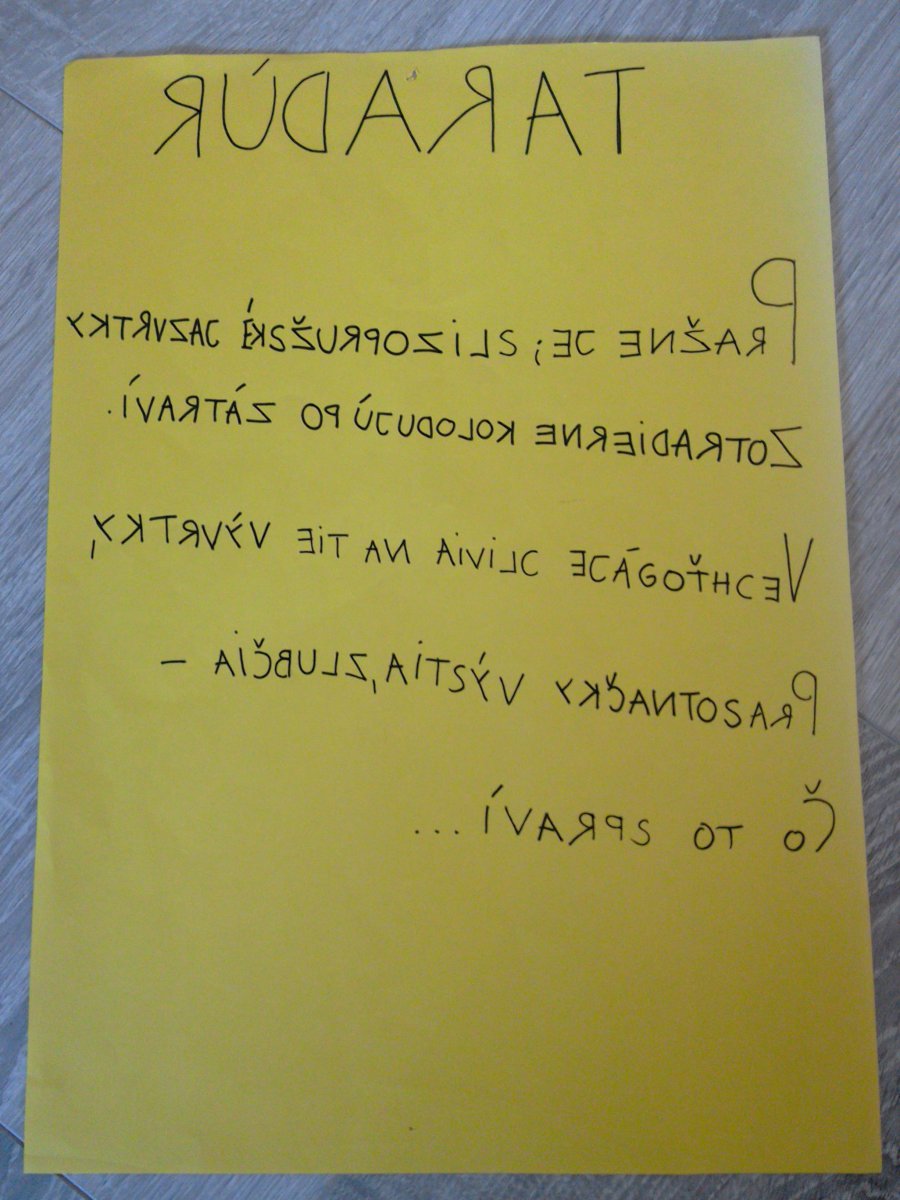 TARADÚR
PRAŽNE JE; SLIZOPRUŽSKÉ JAZVRTKY
ZOTRADIERNE KOLODUJÚ PO ZÁTRAVÍ.
VECHŤOGÁCE CLIVIA NA TIE VÝVRTKY,
PRASOTNAČKY VÝSTIA, ZLUBČIA –
ČO TO SPRAVÍ...